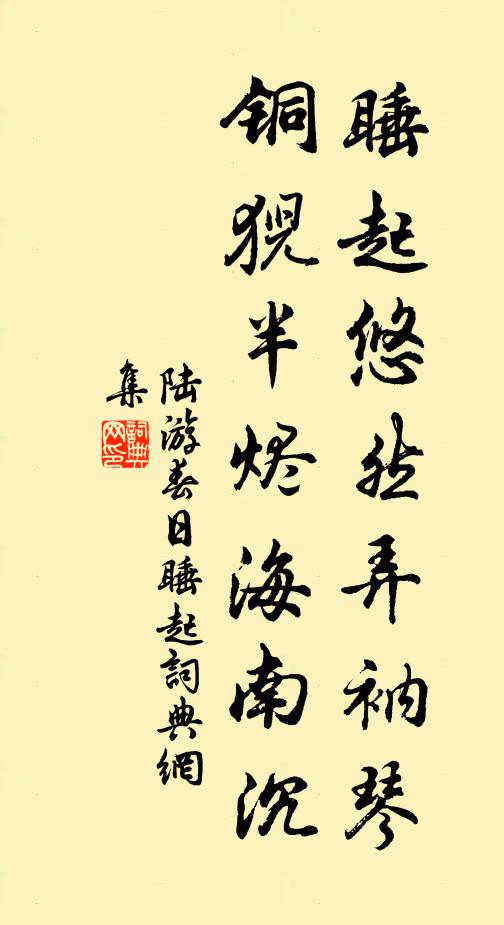 睡起悠然弄衲琴
铜猊半烬海南沉
陆游春日睡起詞典網
集
詞典网印